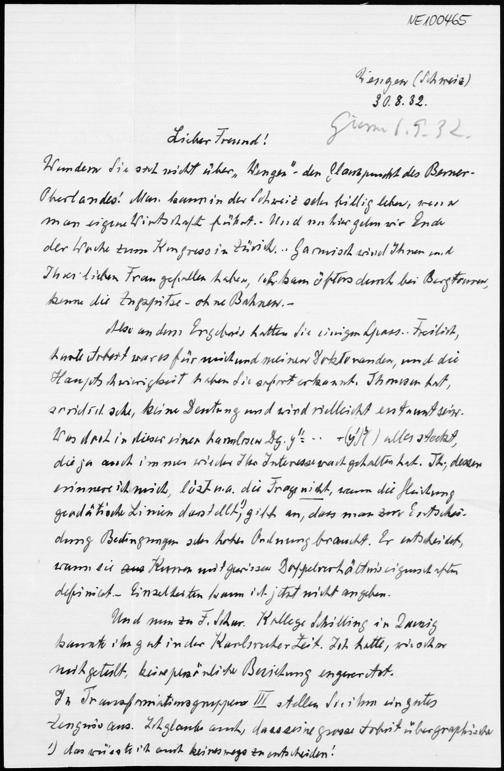 NE100465
Wengen (Schweiz)
30.8.32.
1.9.32.
Lieber Freund!
Wundern Sie sich nicht über „Wengen“ - den Glanzpunkt des Berner-
Oberlandes! Man kann in der Schweiz sehr billig leben, wenn
man eigene Wirtschaft führt. - Und von hier gehen wir Ende
der Woche zum Kongress in Zürich. - Garmisch wird Ihnen und
Ihrer lieben Frau gefallen haben, ich kam öfters durch bei Bergtouren,
kenne die Zugspitze - ohne Bahnen. -
Also an dem Ergebnis hatten Sie einigen Spass. Freilich,
harte Arbeit war es für mich und meinen Doktoranden, und die
Hauptschwierigkeit haben Sie sofort erkannt. Thomsen hat,
soviel ich sehe, keine Deutung und wird vielleicht erstaunt sein.
Was doch in dieser einen harmlosen Dg. y''= alles steckt,
die ja auch immer wieder Ihr Interesse wach gehalten hat. Th., dessen
erinnere ich mich, löst u.a. die Frage nicht, wann die Gleichung
geodätische Linien darstellt¹⁾, gibt an, dass man zur Entschei-
dung Bedingungen sehr hoher Ordnung braucht. Er entscheidet,
wann sie Kurven mit gewissen Doppelverhältniseigenschaften
definiert. - Einzelheiten kann ich jetzt nicht angeben.
Und nun zu F. Schur. Kollege Schilling in Danzig
kannte ihn gut in der Karlsruher Zeit. Ich hatte, wie schon
mitgeteilt, keine persönliche Beziehung angeordnet.
In Transformationsgruppen III stellen Sie ihm ein gutes
Zeugnis aus. Ich glaube auch, dass seine grosse Arbeit über graphische
1) das wüsste ich auch keineswegs zu entscheiden!